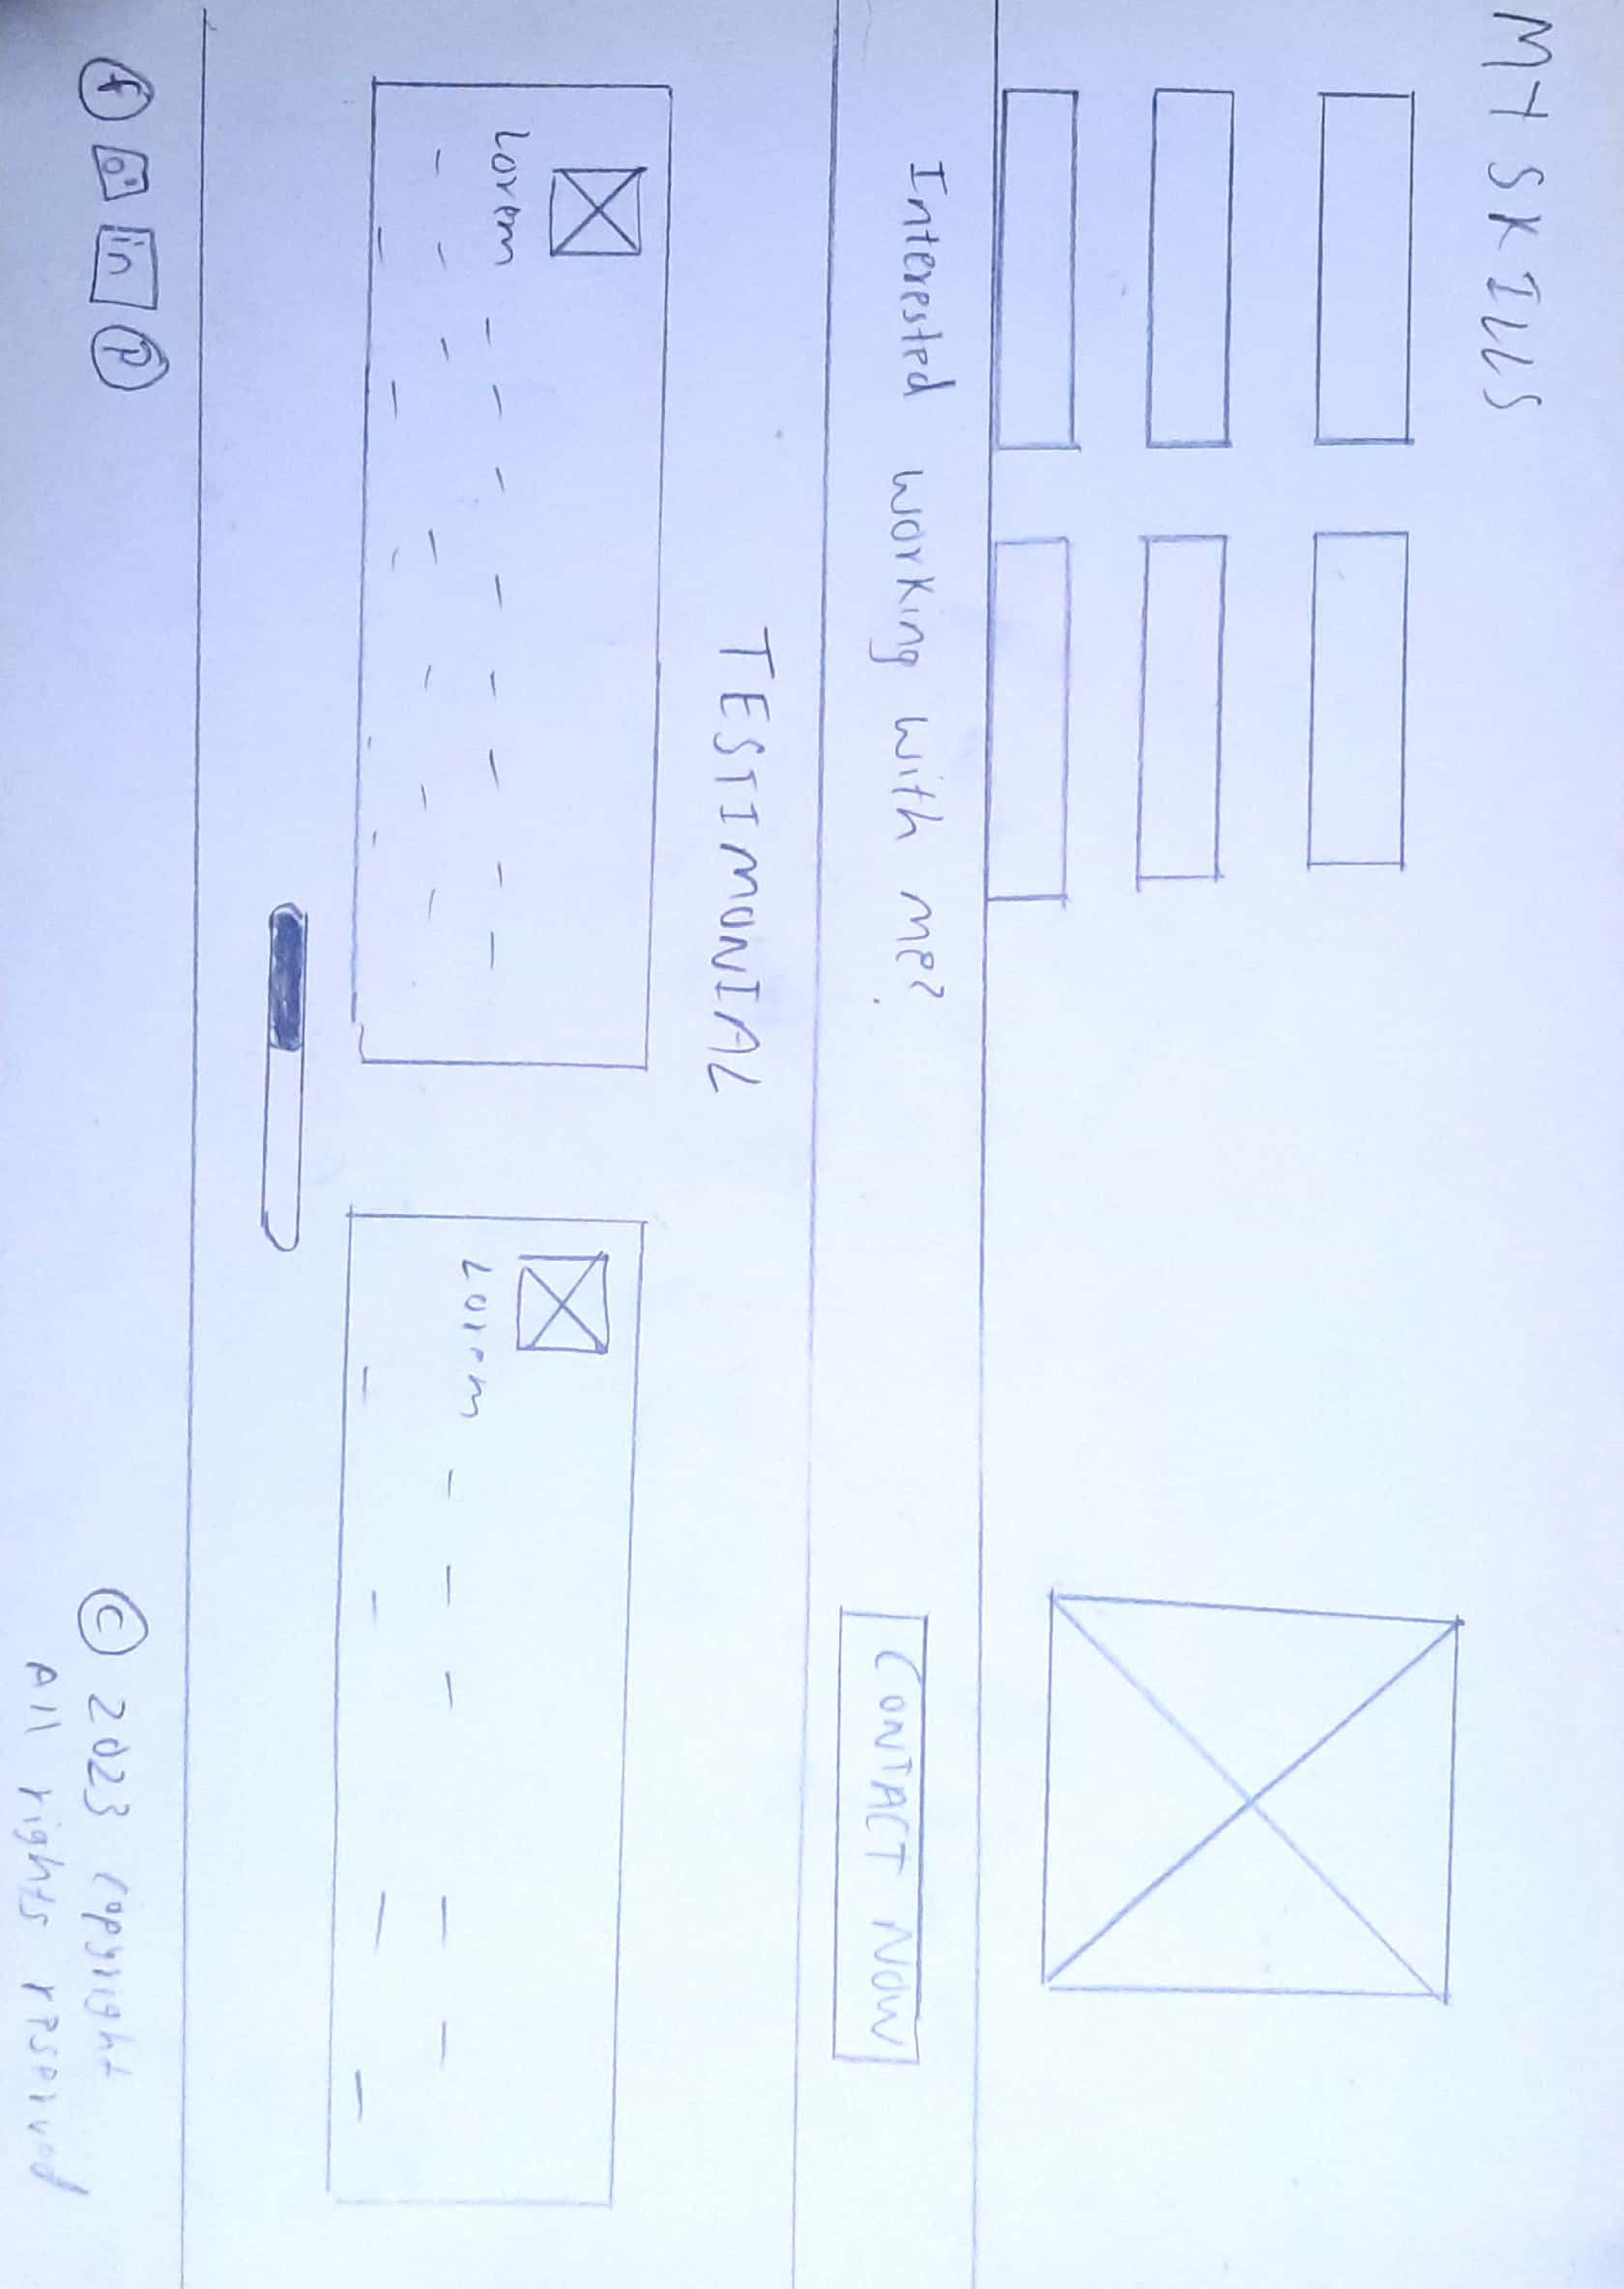 MY SKILLS
Interested working with me?
CONTACT NOW
TESTIMONIAL
Lorem
Lorem
f
in
P
© 2023 copyright
All rights reserved